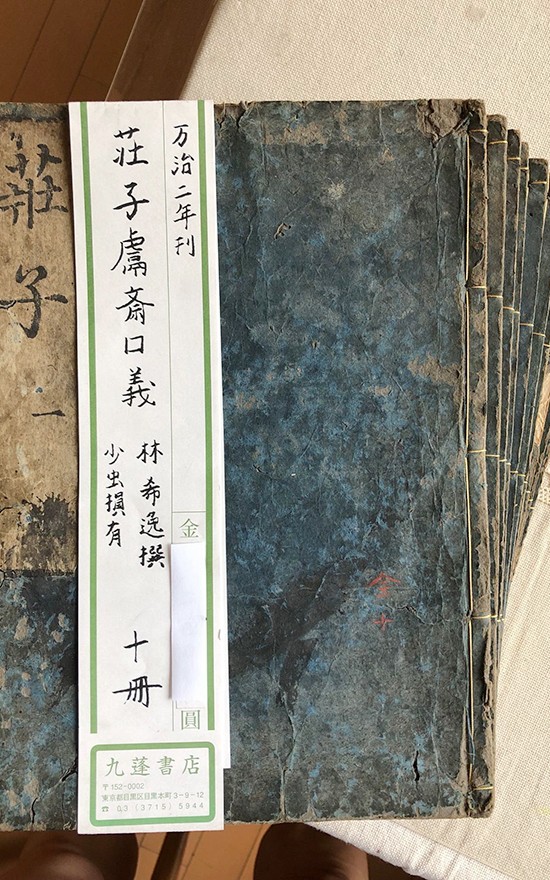 万治二年刊
莊子鬳斎口義
林希逸撰
少虫損有
十冊
金
圓
九蓬書店
〒152-0002
東京都目黒区目黒本町3-9-12
☎ 03 (3715) 5944
莊子 一
全十